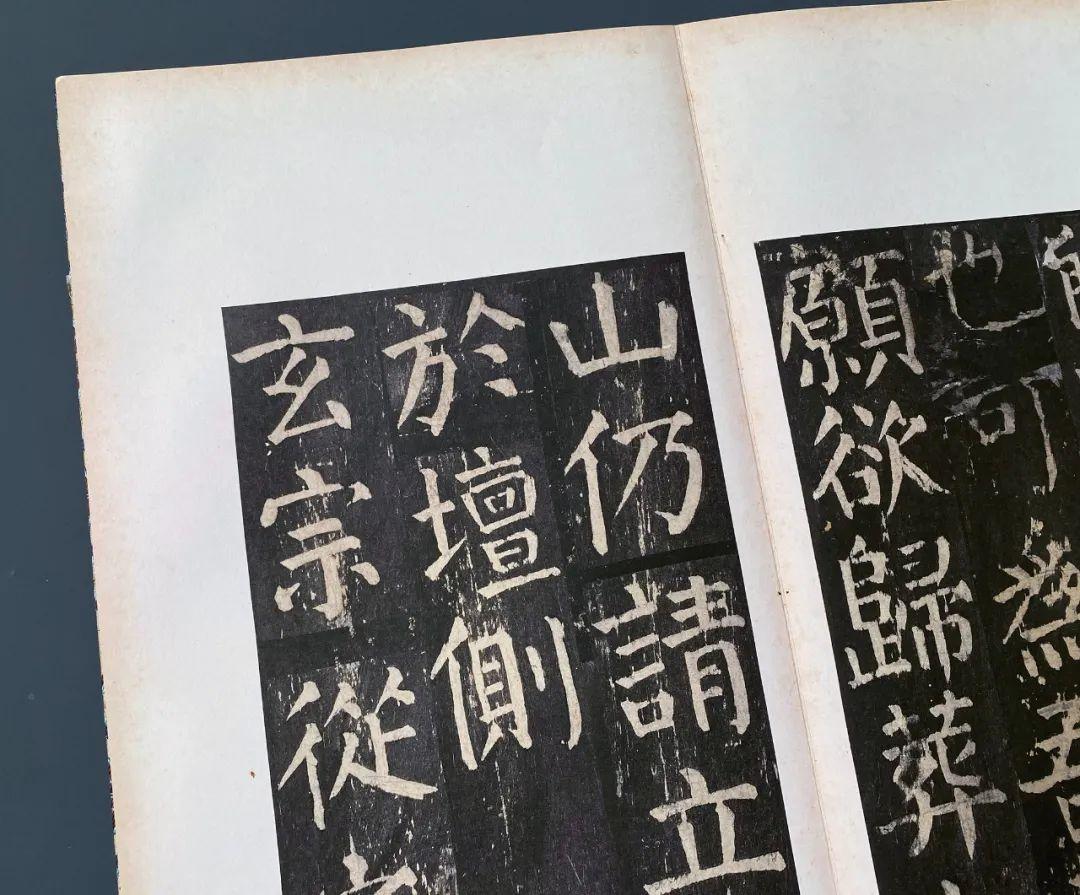 也可爲吾
願欲歸葬
山仍請立
於壇側
玄宗從